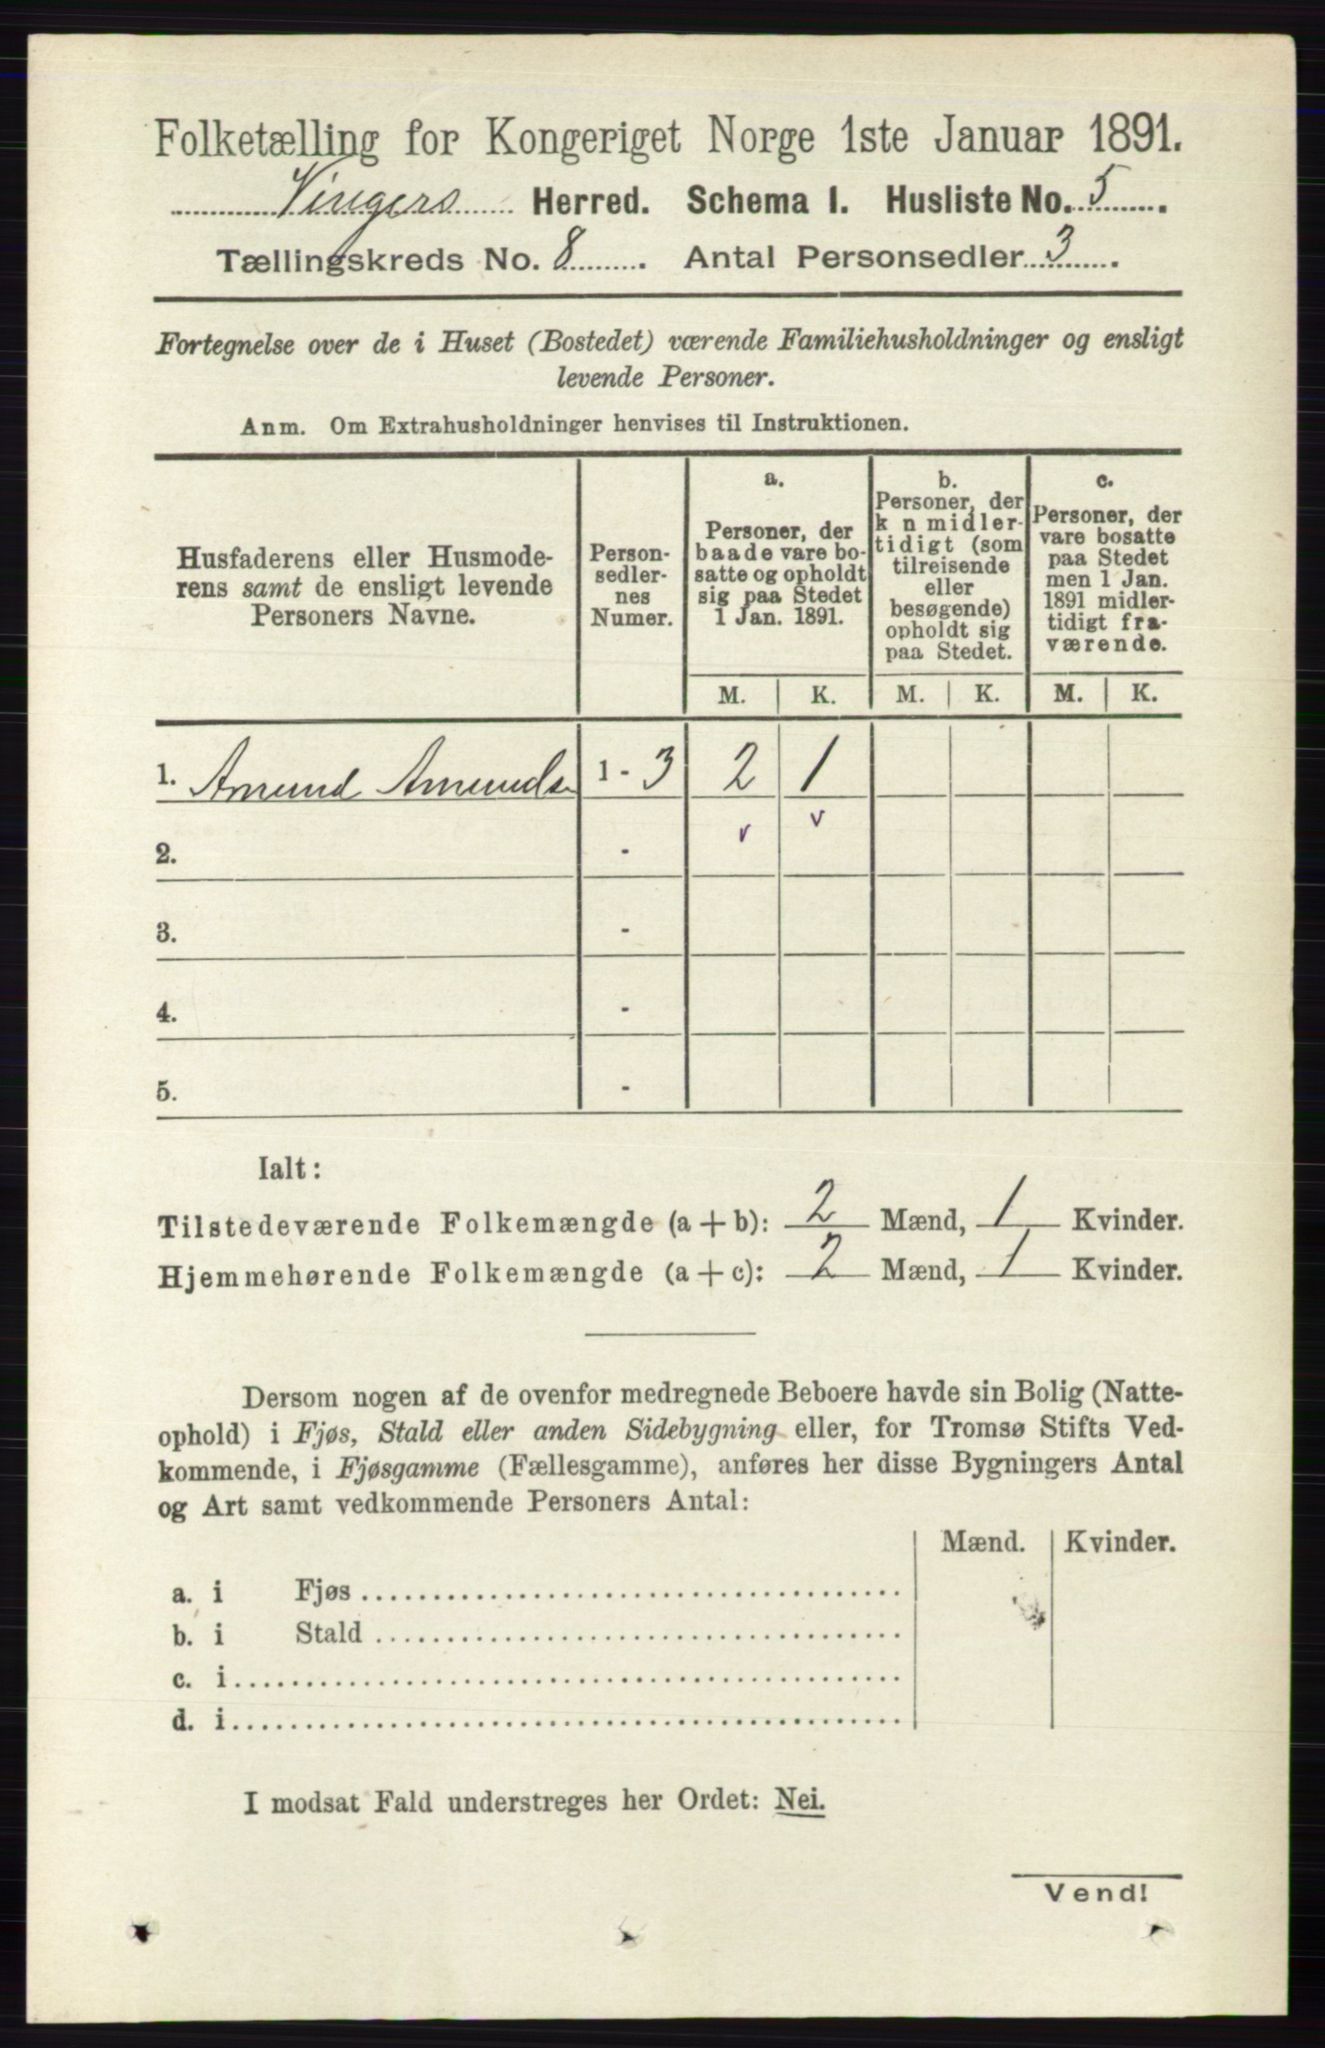 Folketælling for Kongeriget Norge 1ste Januar 1891.
Vingers Herred. Schema I. Husliste No. 5.
Tællingskreds No. 8. Antal Personsedler 3.
Fortegnelse over de i Huset (Bostedet) værende Familiehusholdninger og ensligt
levende Personer.
Anm. Om Extrahusholdninger henvises til Instruktionen.
Husfaderens eller Husmode-
rens samt de ensligt levende
Personers Navne.
Person-
sedler-
nes
Numer.
a.
Personer, der
baade vare bo-
satte og opholdt
sig paa Stedet
1 Jan. 1891.
b.
Personer, der
k n midler-
tidigt (som
tilreisende
eller
besøgende)
opholdt sig
paa Stedet.
c.
Personer, der
vare bosatte
paa Stedet
men 1 Jan.
1891 midler-
tidigt fra-
værende.
M. K. M. K. M. K.
1. Amund Amunds. 1 - 3 2 1
v v
2. -
3. -
4. -
5. -
Ialt:
Tilstedeværende Folkemængde (a + b): 2 Mænd, 1 Kvinder.
Hjemmehørende Folkemængde (a + c): 2 Mænd, 1 Kvinder.
Dersom nogen af de ovenfor medregnede Beboere havde sin Bolig (Natte-
ophold) i Fjøs, Stald eller anden Sidebygning eller, for Tromsø Stifts Ved-
kommende, i Fjøsgamme (Fællesgamme), anføres her disse Bygningers Antal
og Art samt vedkommende Personers Antal:
Mænd. Kvinder.
a. i Fjøs
b. i Stald
c. i
d. i
I modsat Fald understreges her Ordet: Nei.
Vend!